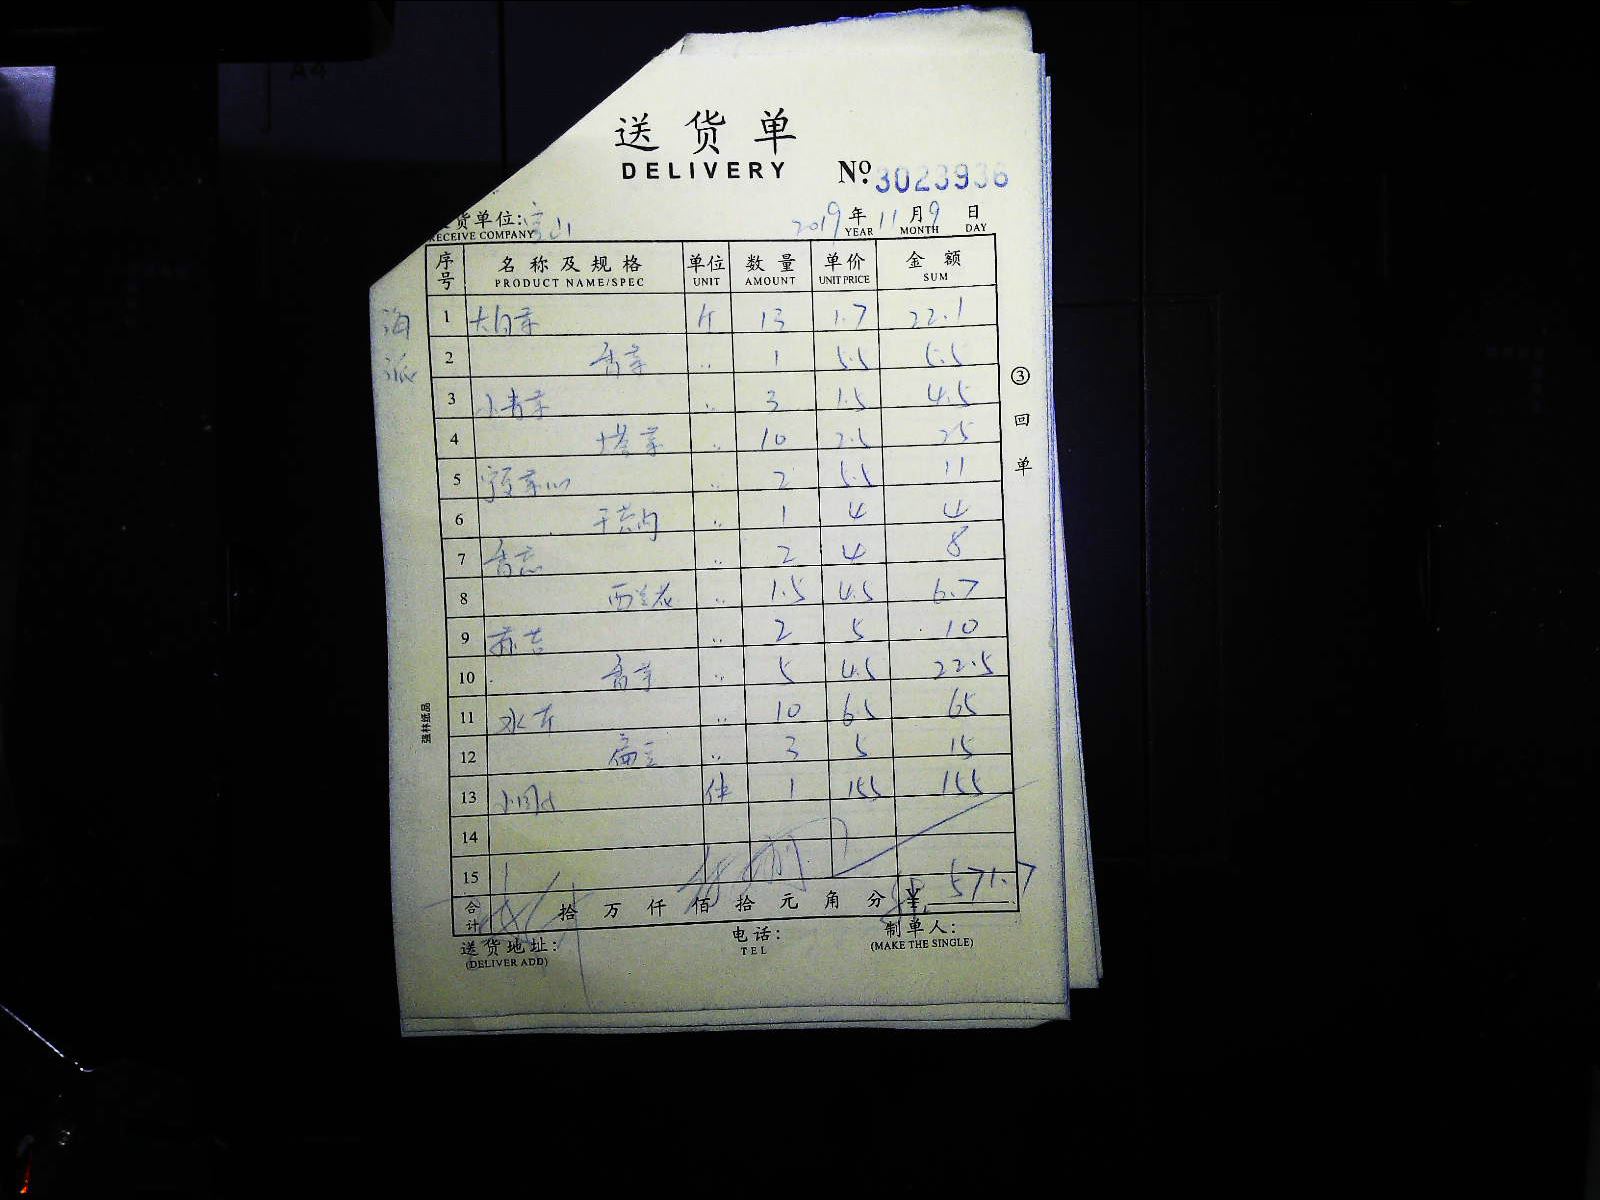 送货单
DELIVERY
№ 3023936
货单位: 2019年11月9日
RECEIVE COMPANY YEAR MONTH DAY
序号 名称及规格 单位 数量 单价 金额
PRODUCT NAME/SPEC UNIT AMOUNT UNIT PRICE SUM
海派
1 大白菜 斤 13 1.7 22.1
2 香菜 〃 1 5.5 5.5
3 小青菜 〃 3 1.5 4.5
4 塔菜 〃 10 2.5 25
5 〃 2 5.5 11
6 〃 1 4 4
7 〃 2 4 8
8 西兰花 〃 1.5 4.5 6.7
9 〃 2 5 10
10 〃 5 4.5 22.5
11 〃 10 6.5 65
12 〃 3 5 15
13 件 1 155 155
14
15
合计 拾万仟佰拾元角分 ¥ 571.7
送货地址: 电话: 制单人:
(DELIVER ADD) TEL (MAKE THE SINGLE)
③回单
强林纸品